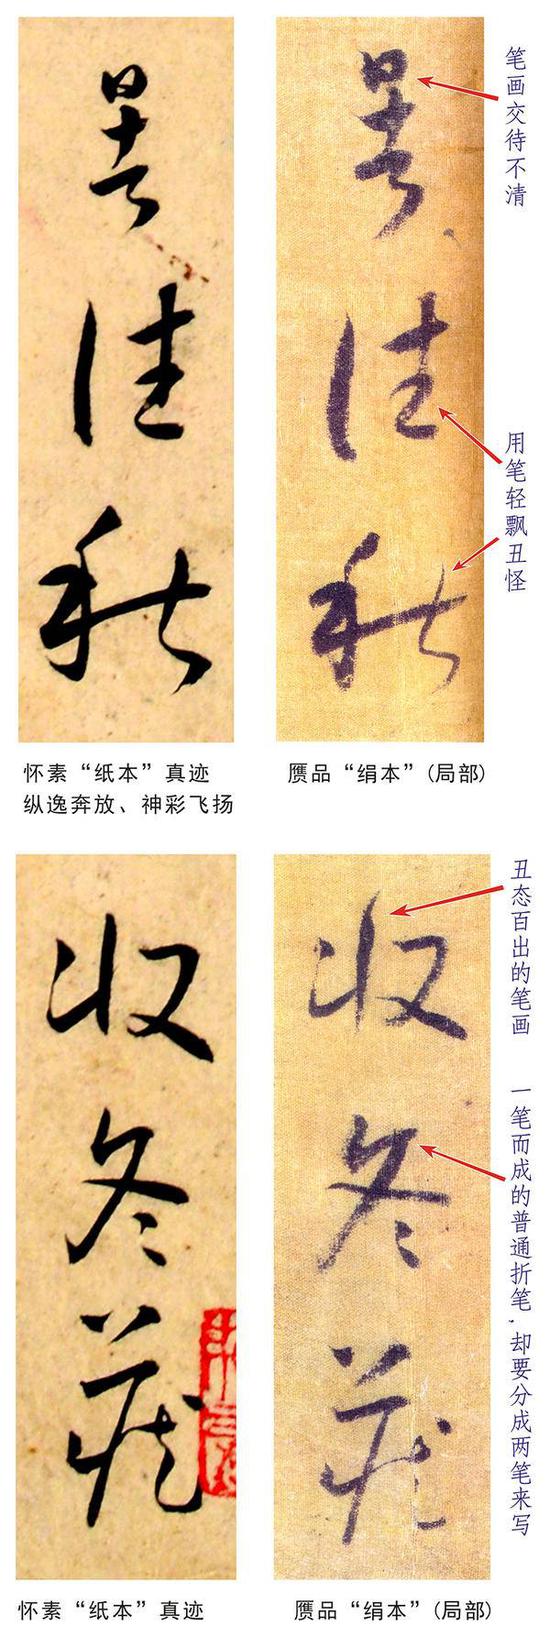 暑往秋
暑往秋
笔画交待不清
用笔轻飘丑怪
怀素“纸本”真迹
纵逸奔放、神彩飞扬
赝品“绢本”(局部)
收冬藏
收冬藏
丑态百出的笔画
一笔而成的普通折笔,却要分成两笔来写
怀素“纸本”真迹
赝品“绢本”(局部)